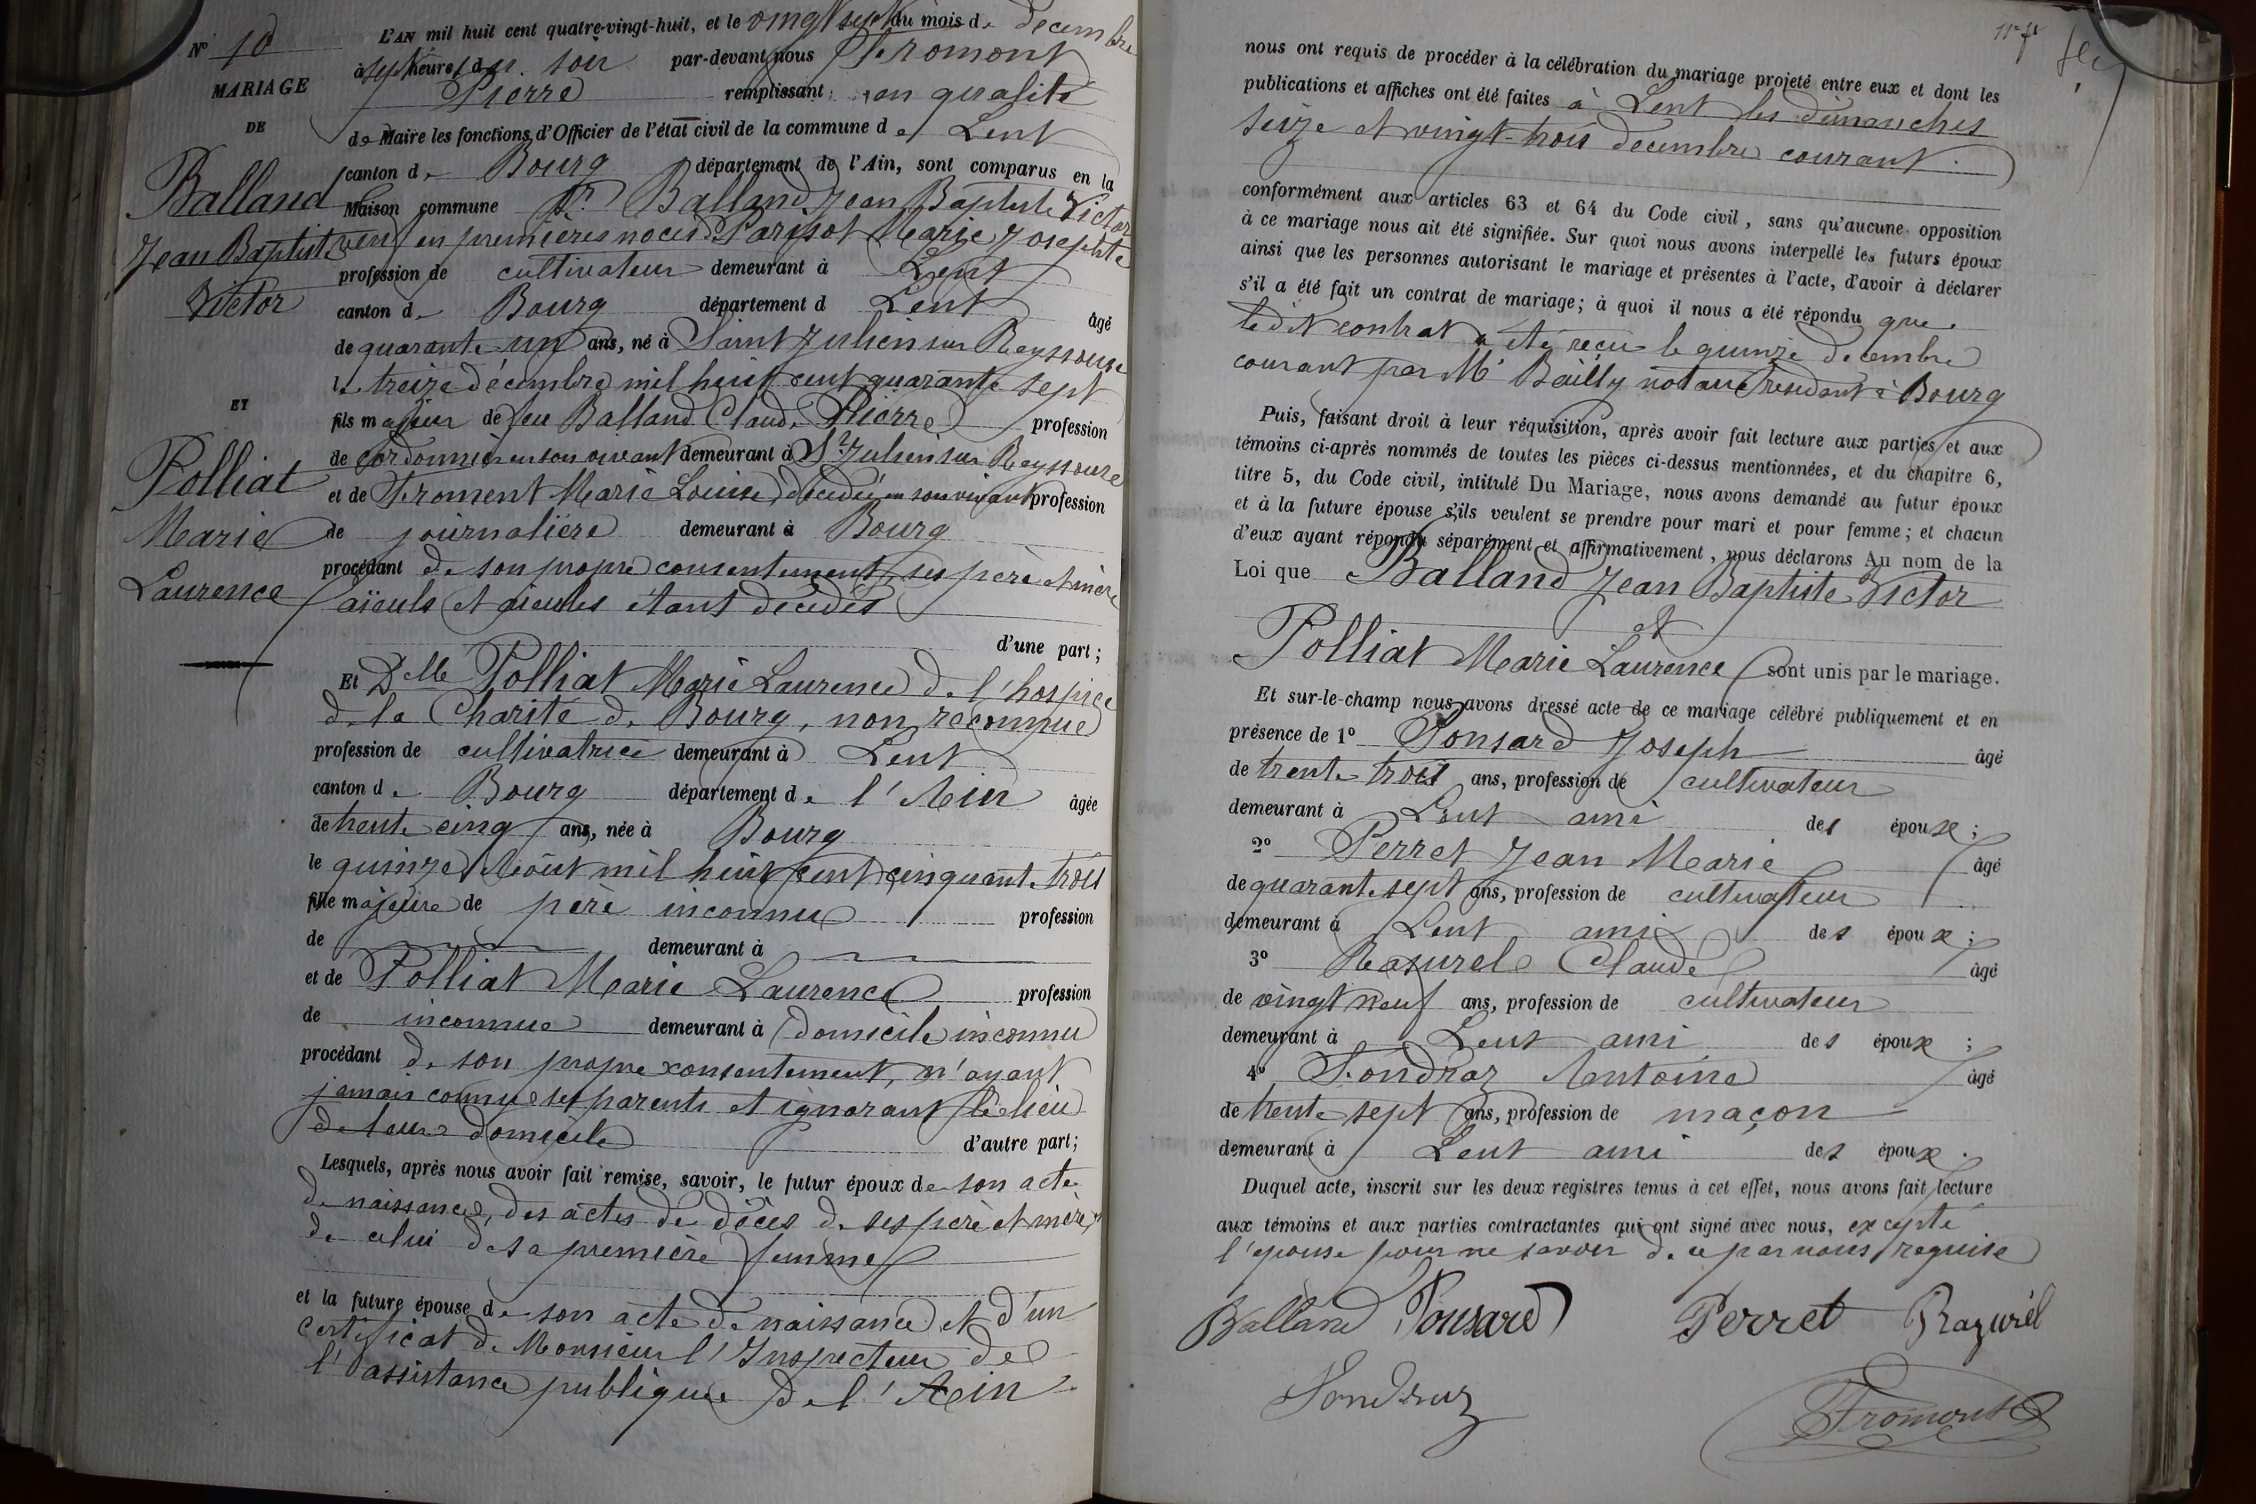 N° 10
MARIAGE
DE
Balland
Jean Baptiste
Victor
ET
Polliat
Marie
Laurence
L'AN mil huit cent quatre-vingt-huit, et le vingt sept du mois de décembre
à sept heures du soir par-devant nous Fromont
Pierre remplissant en qualité
de Maire les fonctions d'Officier de l'état civil de la commune de Lent
canton de Bourg département de l'Ain, sont comparus en la
Maison commune Sr Balland Jean Baptiste Victor
veuf en premières noces de Parisot Marie Josephte
profession de cultivateur demeurant à Lent
canton de Bourg département d Lent âgé
de quarante un ans, né à Saint Julien sur Reyssouse
le treize décembre mil huit cent quarante sept
fils majeur de feu Balland Claude Pierre profession
de Cordonnier en son vivant demeurant à St Julien sur Reyssouse
et de Froment Marie Louise, décédée en son vivant profession
de journalière demeurant à Bourg
procédant de son propre consentement, ses père et mère
aïeuls et aïeules étant décédés
d'une part ;
Et Delle Polliat Marie Laurence de l'hospice
de la Charité de Bourg, non reconnue
profession de cultivatrice demeurant à Lent
canton de Bourg département de l'Ain âgée
de trente cinq ans, née à Bourg
le quinze Août mil huit cent cinquante trois
fille majeure de père inconnu profession
de demeurant à
et de Polliat Marie Laurence profession
de inconnue demeurant à domicile inconnu
procédant de son propre consentement, n'ayant
jamais connu ses parents et ignorant le lieu
de leur domicile d'autre part ;
Lesquels, après nous avoir fait remise, savoir, le futur époux de son acte
de naissance, des actes de décès de ses père et mère et
de celui de sa première femme
et la future épouse de son acte de naissance et d'un
certificat de Monsieur l'Inspecteur de
l'assistance publique de l'Ain
nous ont requis de procéder à la célébration du mariage projeté entre eux et dont les
publications et affiches ont été faites à Lent les dimanches
seize et vingt-trois décembre courant.
conformément aux articles 63 et 64 du Code civil, sans qu'aucune opposition
à ce mariage nous ait été signifiée. Sur quoi nous avons interpellé les futurs époux
ainsi que les personnes autorisant le mariage et présentes à l'acte, d'avoir à déclarer
s'il a été fait un contrat de mariage ; à quoi il nous a été répondu que
ledit contrat a été reçu le quinze décembre
courant par Me Bailly notaire résidant à Bourg
Puis, faisant droit à leur réquisition, après avoir fait lecture aux parties et aux
témoins ci-après nommés de toutes les pièces ci-dessus mentionnées, et du chapitre 6,
titre 5, du Code civil, intitulé Du Mariage, nous avons demandé au futur époux
et à la future épouse s'ils veulent se prendre pour mari et pour femme ; et chacun
d'eux ayant répondu séparément et affirmativement, nous déclarons Au nom de la
Loi que Balland Jean Baptiste Victor
et
Polliat Marie Laurence sont unis par le mariage.
Et sur-le-champ nous avons dressé acte de ce mariage célébré publiquement et en
présence de 1° Ponsard Joseph âgé
de trente trois ans, profession de cultivateur
demeurant à Lent ami des époux ;
2° Perret Jean Marie âgé
de quarante sept ans, profession de cultivateur
demeurant à Lent ami des époux ;
3° Rasurel Claude âgé
de vingt neuf ans, profession de cultivateur
demeurant à Lent ami des époux ;
4° Fondraz Antoine âgé
de trente sept ans, profession de maçon
demeurant à Lent ami des époux.
Duquel acte, inscrit sur les deux registres tenus à cet effet, nous avons fait lecture
aux témoins et aux parties contractantes qui ont signé avec nous, excepté
l'épouse pour ne savoir de ce par nous requise
Balland Ponsard Perret Razurel
Fondraz
Fromont